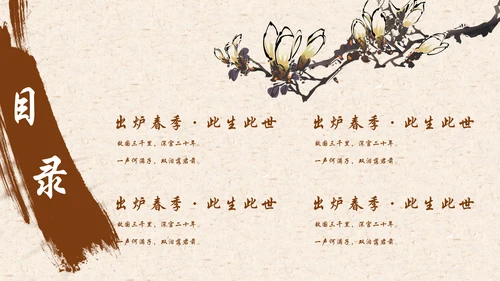 目录
出炉春季·此生此世
故国三千里，深宫二十年。
一声何满子，双泪落君前。
出炉春季·此生此世
故国三千里，深宫二十年。
一声何满子，双泪落君前。
出炉春季·此生此世
故国三千里，深宫二十年。
一声何满子，双泪落君前。
出炉春季·此生此世
故国三千里，深宫二十年。
一声何满子，双泪落君前。